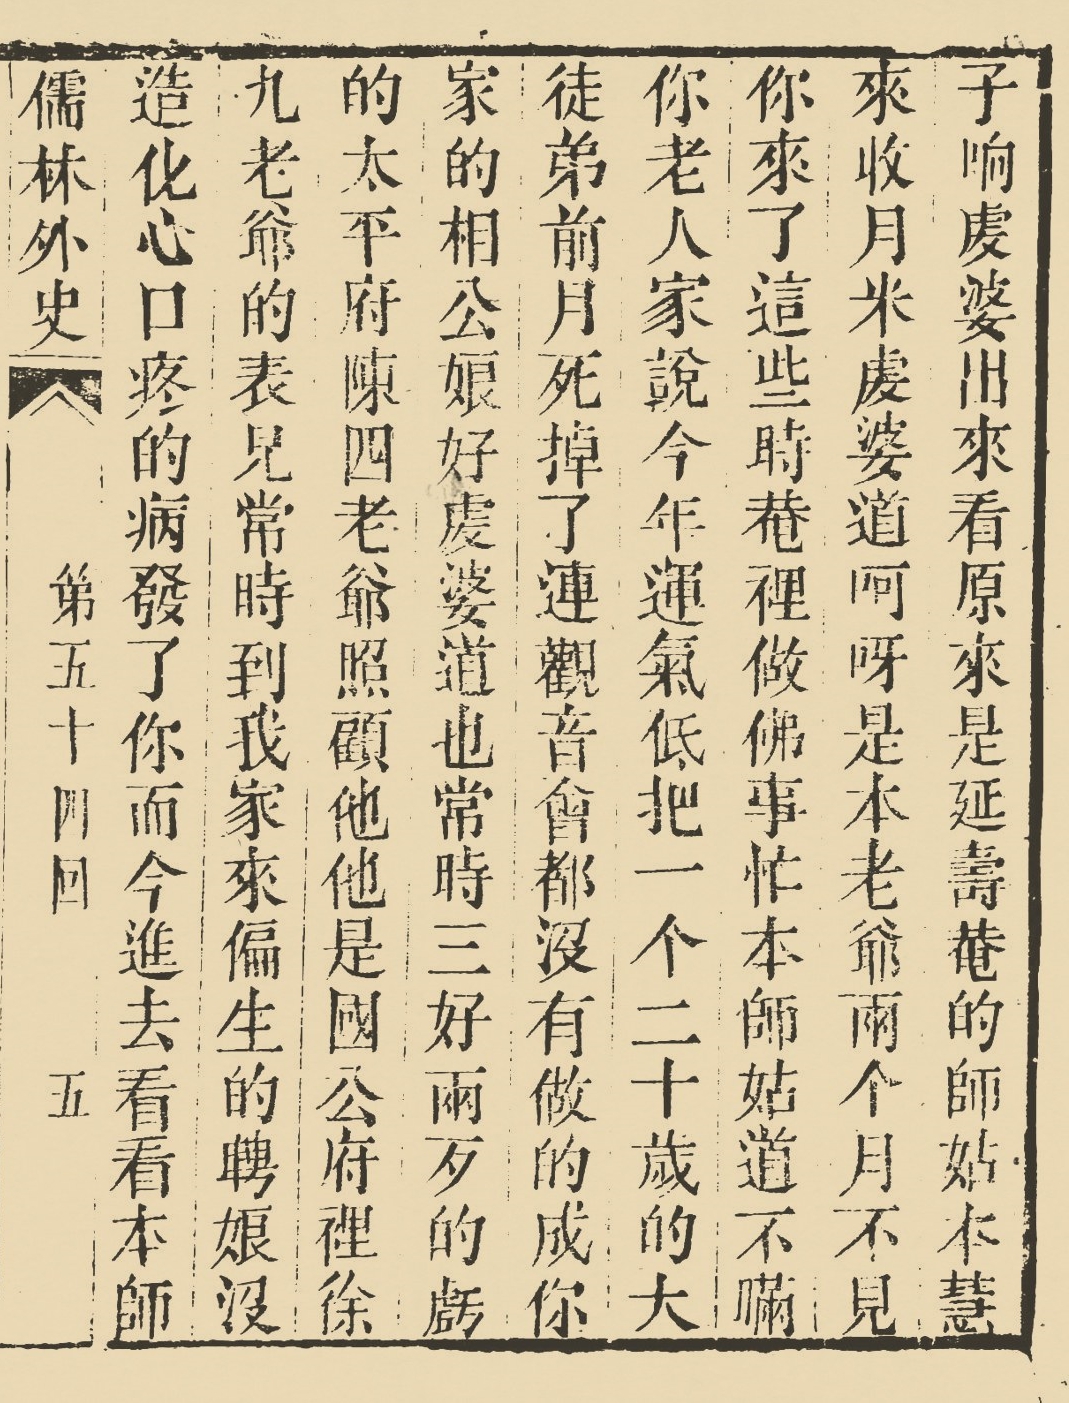 子响虔婆出來看原來是延壽菴的師姑本慧
來收月米虔婆道呵呀是本老爺兩个月不見
你來了這些時菴裡做佛事忙本師姑道不瞞
你老人家說今年運氣低把一个二十歲的大
徒弟前月死掉了連觀音會都沒有做的成你
家的相公娘好虔婆道也常時三好兩歹的虧
的太平府陳四老爺照顧他他是國公府裡徐
九老爺的表兄常時到我家來偏生的聘娘沒
造化心口疼的病發了你而今進去看看本師
儒林外史 第五十四回 五